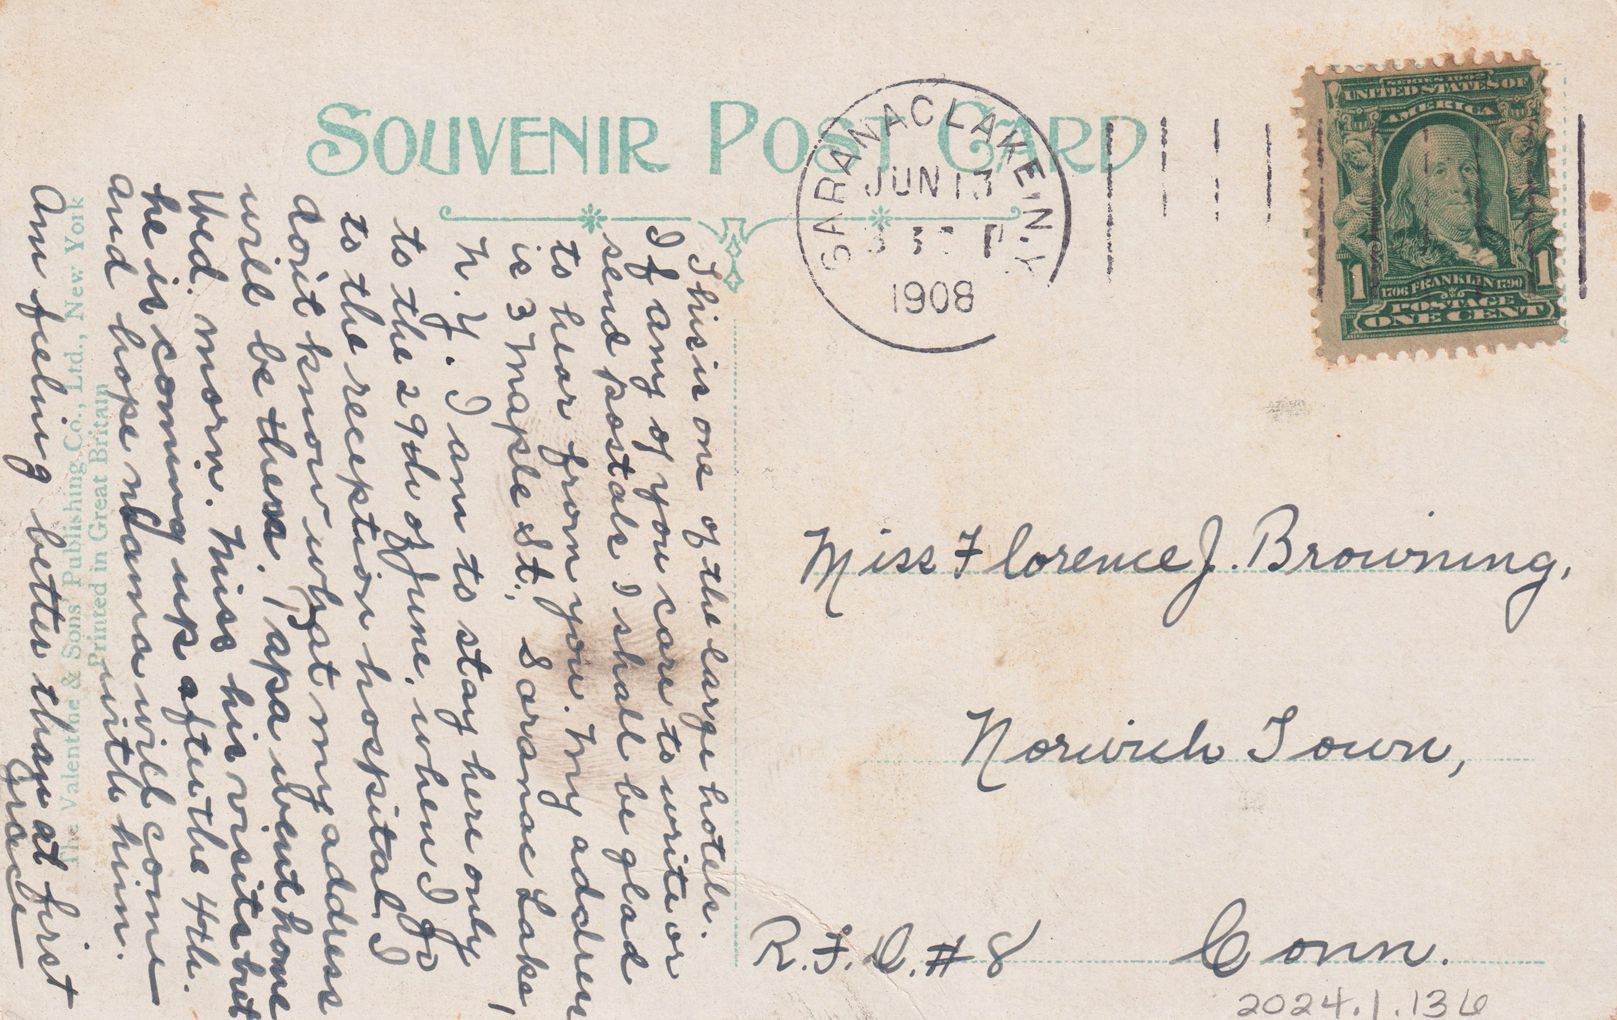 SOUVENIR POST CARD
SARANAC LAKE, N.Y.
JUN 13
1908
SERIES 1902
UNITED STATES OF
AMERICA
1706 FRANKLIN 1790
POSTAGE
1 ONE CENT 1
This is one of the large hotels.
If any of you care to write or
send postals I shall be glad
to hear from you. My address
is 3 Maple St., Saranac Lake,
N. Y. I am to stay here only
to the 29th of June, when I go
to the reception hospital. I
don't know what my address
will be there. Papa went home
Wed. morn. Miss his visits but
he is coming up after the 4th.
and hope Mama will come
with him.
Am feeling better than at first
Grace
The Valentine & Sons' Publishing Co., Ltd., New York
Printed in Great Britain
Miss Florence J. Browning,
Norwich Town,
R.F.D. #8 Conn.
2024.1.136